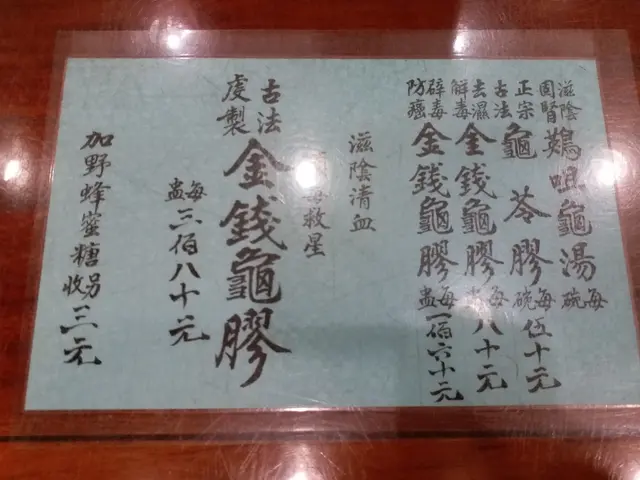 滋陰固腎 鷓咀龜湯 每碗
正宗古法 龜苓膠 每碗伍十元
去濕解毒 金錢龜膠 八十元
辟毒防癌 金錢龜膠 每盅一佰六十元
滋陰清血
救星
古法虔製 金錢龜膠
每盅三佰八十元
加野蜂蜜糖另收三元